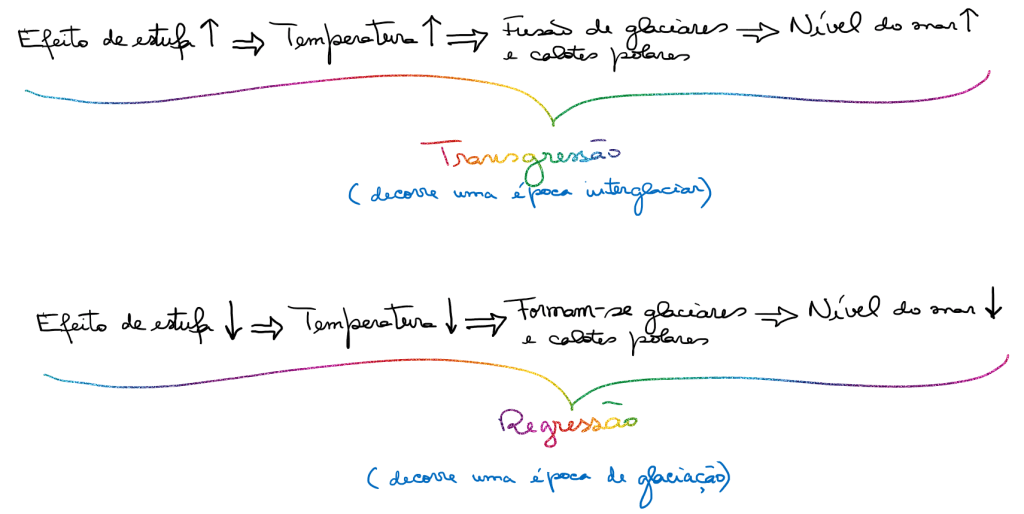 Efeito de estufa ↑ ⇒ Temperatura ↑ ⇒ Fusão de glaciares ⇒ Nível do mar ↑
e calotes polares
Transgressão
(decorre uma época interglaciar)
Efeito de estufa ↓ ⇒ Temperatura ↓ ⇒ Formam-se glaciares ⇒ Nível do mar ↓
e calotes polares
Regressão
(decorre uma época de glaciação)